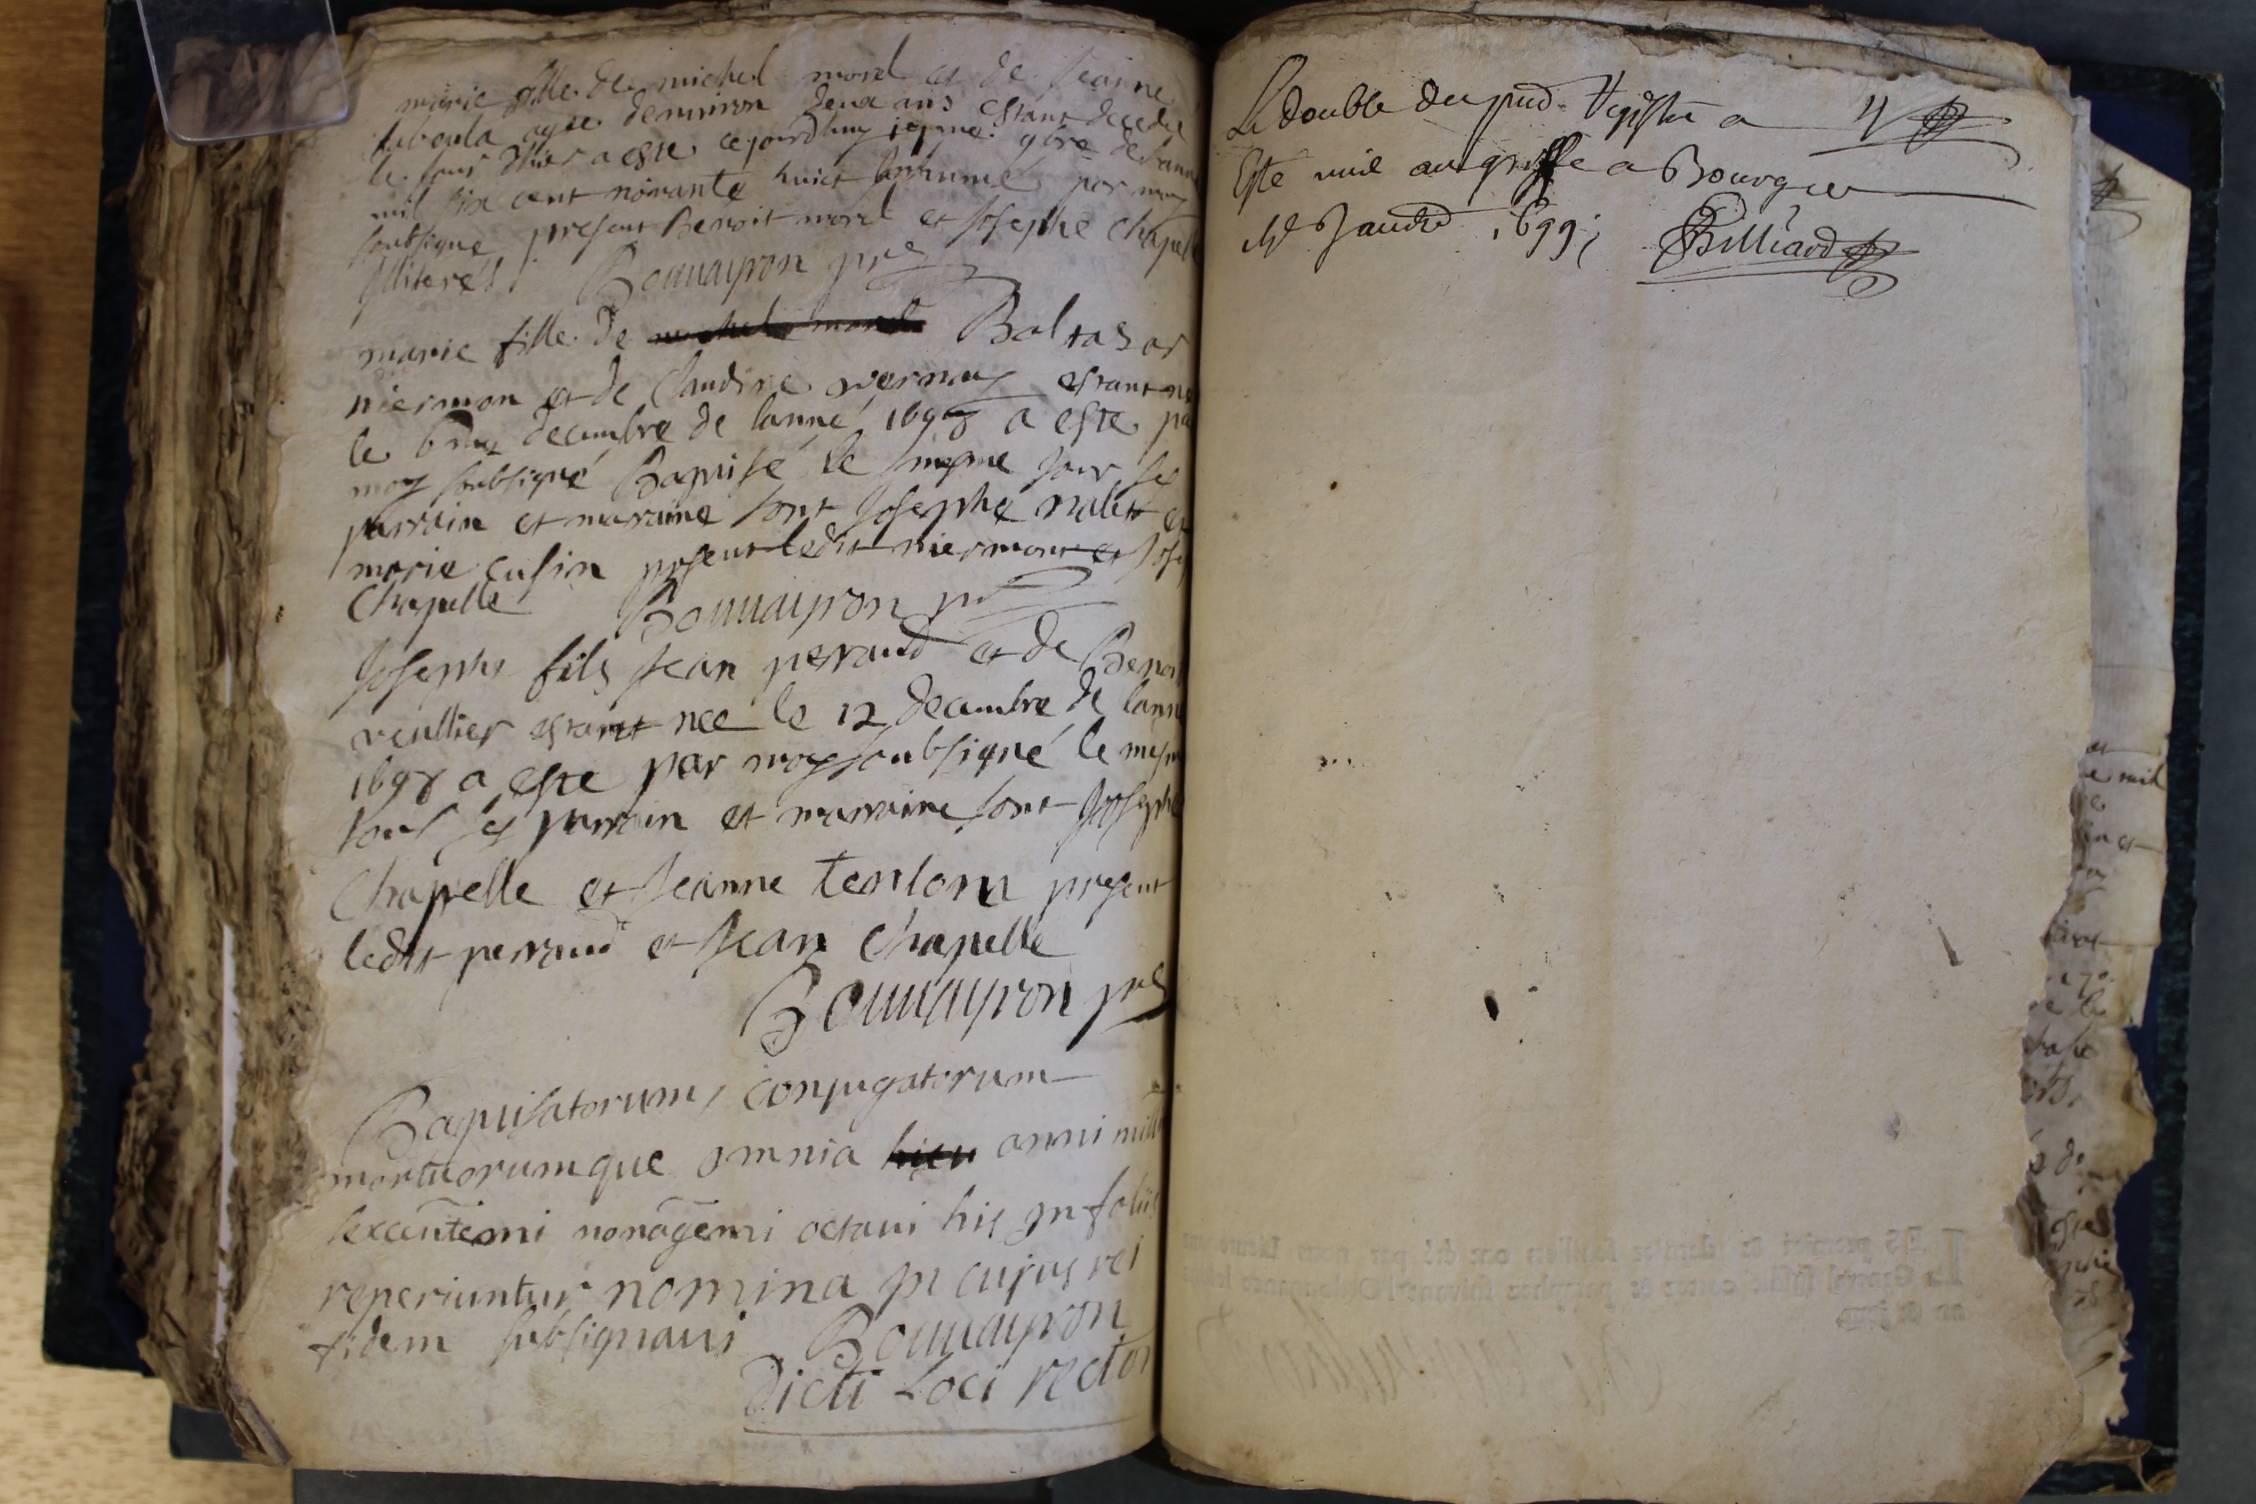 marie fille de michel morel et de Jeanne
agee denviron deux ans estant decedee
le jour dhier a este cejourdhuy 9bre de lanne
mil six cent nonante huict inhumé par moy
soubsigne present Benoit morel et Josephe Chapelle
Illiterés Bouuayron pre
marie fille de michel morel Baltasar
niermon et de Claudine vernay estant ne
le 6me decembre de lanné 1698 a este par
moy soubsigné Baptisé le mesme jour ses
parrain et maraine sont Josephe nalet et
marie cusin present ledit niermont et Jose
Chapelle Bouuayron pre
Josephe fils Jean peraud et de Benoi
veullier estant nee le 12 decembre de lanne
1698 a este par moy soubsigné le mesm
jour ses parrain et marraine sont Josephe
Chapelle et Jeanne present
ledit perraud et Jean Chapelle
Bouuayron pre
Baptisatorum, conjugatorum
mortuorumque omnia anni mill
sexcentemi nonagemi octaui his in foliis
reperiuntur nomina in cujus rei
fidem subsignaui Bouuayron
Dicti Loci rector
Le double du pnt Registre a
Esté mis au greffe a Bourg ce
Janvier 1699;
Billiard
LES premier & dernier feuillets ont été par nous Lieute
General susdit cottez & paraphez suivant l'Ordonnance